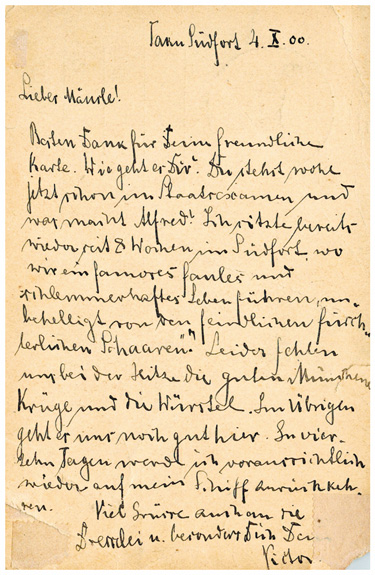 Taku Südfort 4. X. 00.
Lieber Männle!
Besten Dank für Deine freundliche
Karte. Wie geht es Dir? Du stehst wohl
jetzt schon im Staatsexamen und
was macht Alfred? Ich sitze bereits
wieder seit 8 Wochen im Südfort, wo
wir ein famoses faules und
schlemmerhaftes Leben führen, un-
behelligt von den feindlichen "fürch-
terlichen Schaaren". Leider fehlen
uns bei der Hitze die guten Münchener
Krüge und die Würstel. Im Übrigen
geht es uns noch gut hier. In vier-
zehn Tagen werde ich voraussichtlich
wieder auf mein Schiff zurückkeh-
ren. Viel Grüsse auch an die
u. besonders Dich Dein
Victor